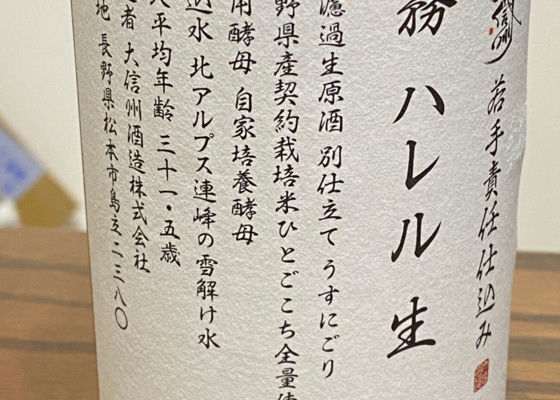 信州 若手責任仕込み
霧 ハレル生
濾過生原酒 別仕立て うすにごり
野県産契約栽培米ひとごこち全量使
用酵母 自家培養酵母
水 北アルプス連峰の雪解け水
平均年齢 三十一・五歳
者 大信州酒造株式会社
地 長野県松本市島立二三八〇